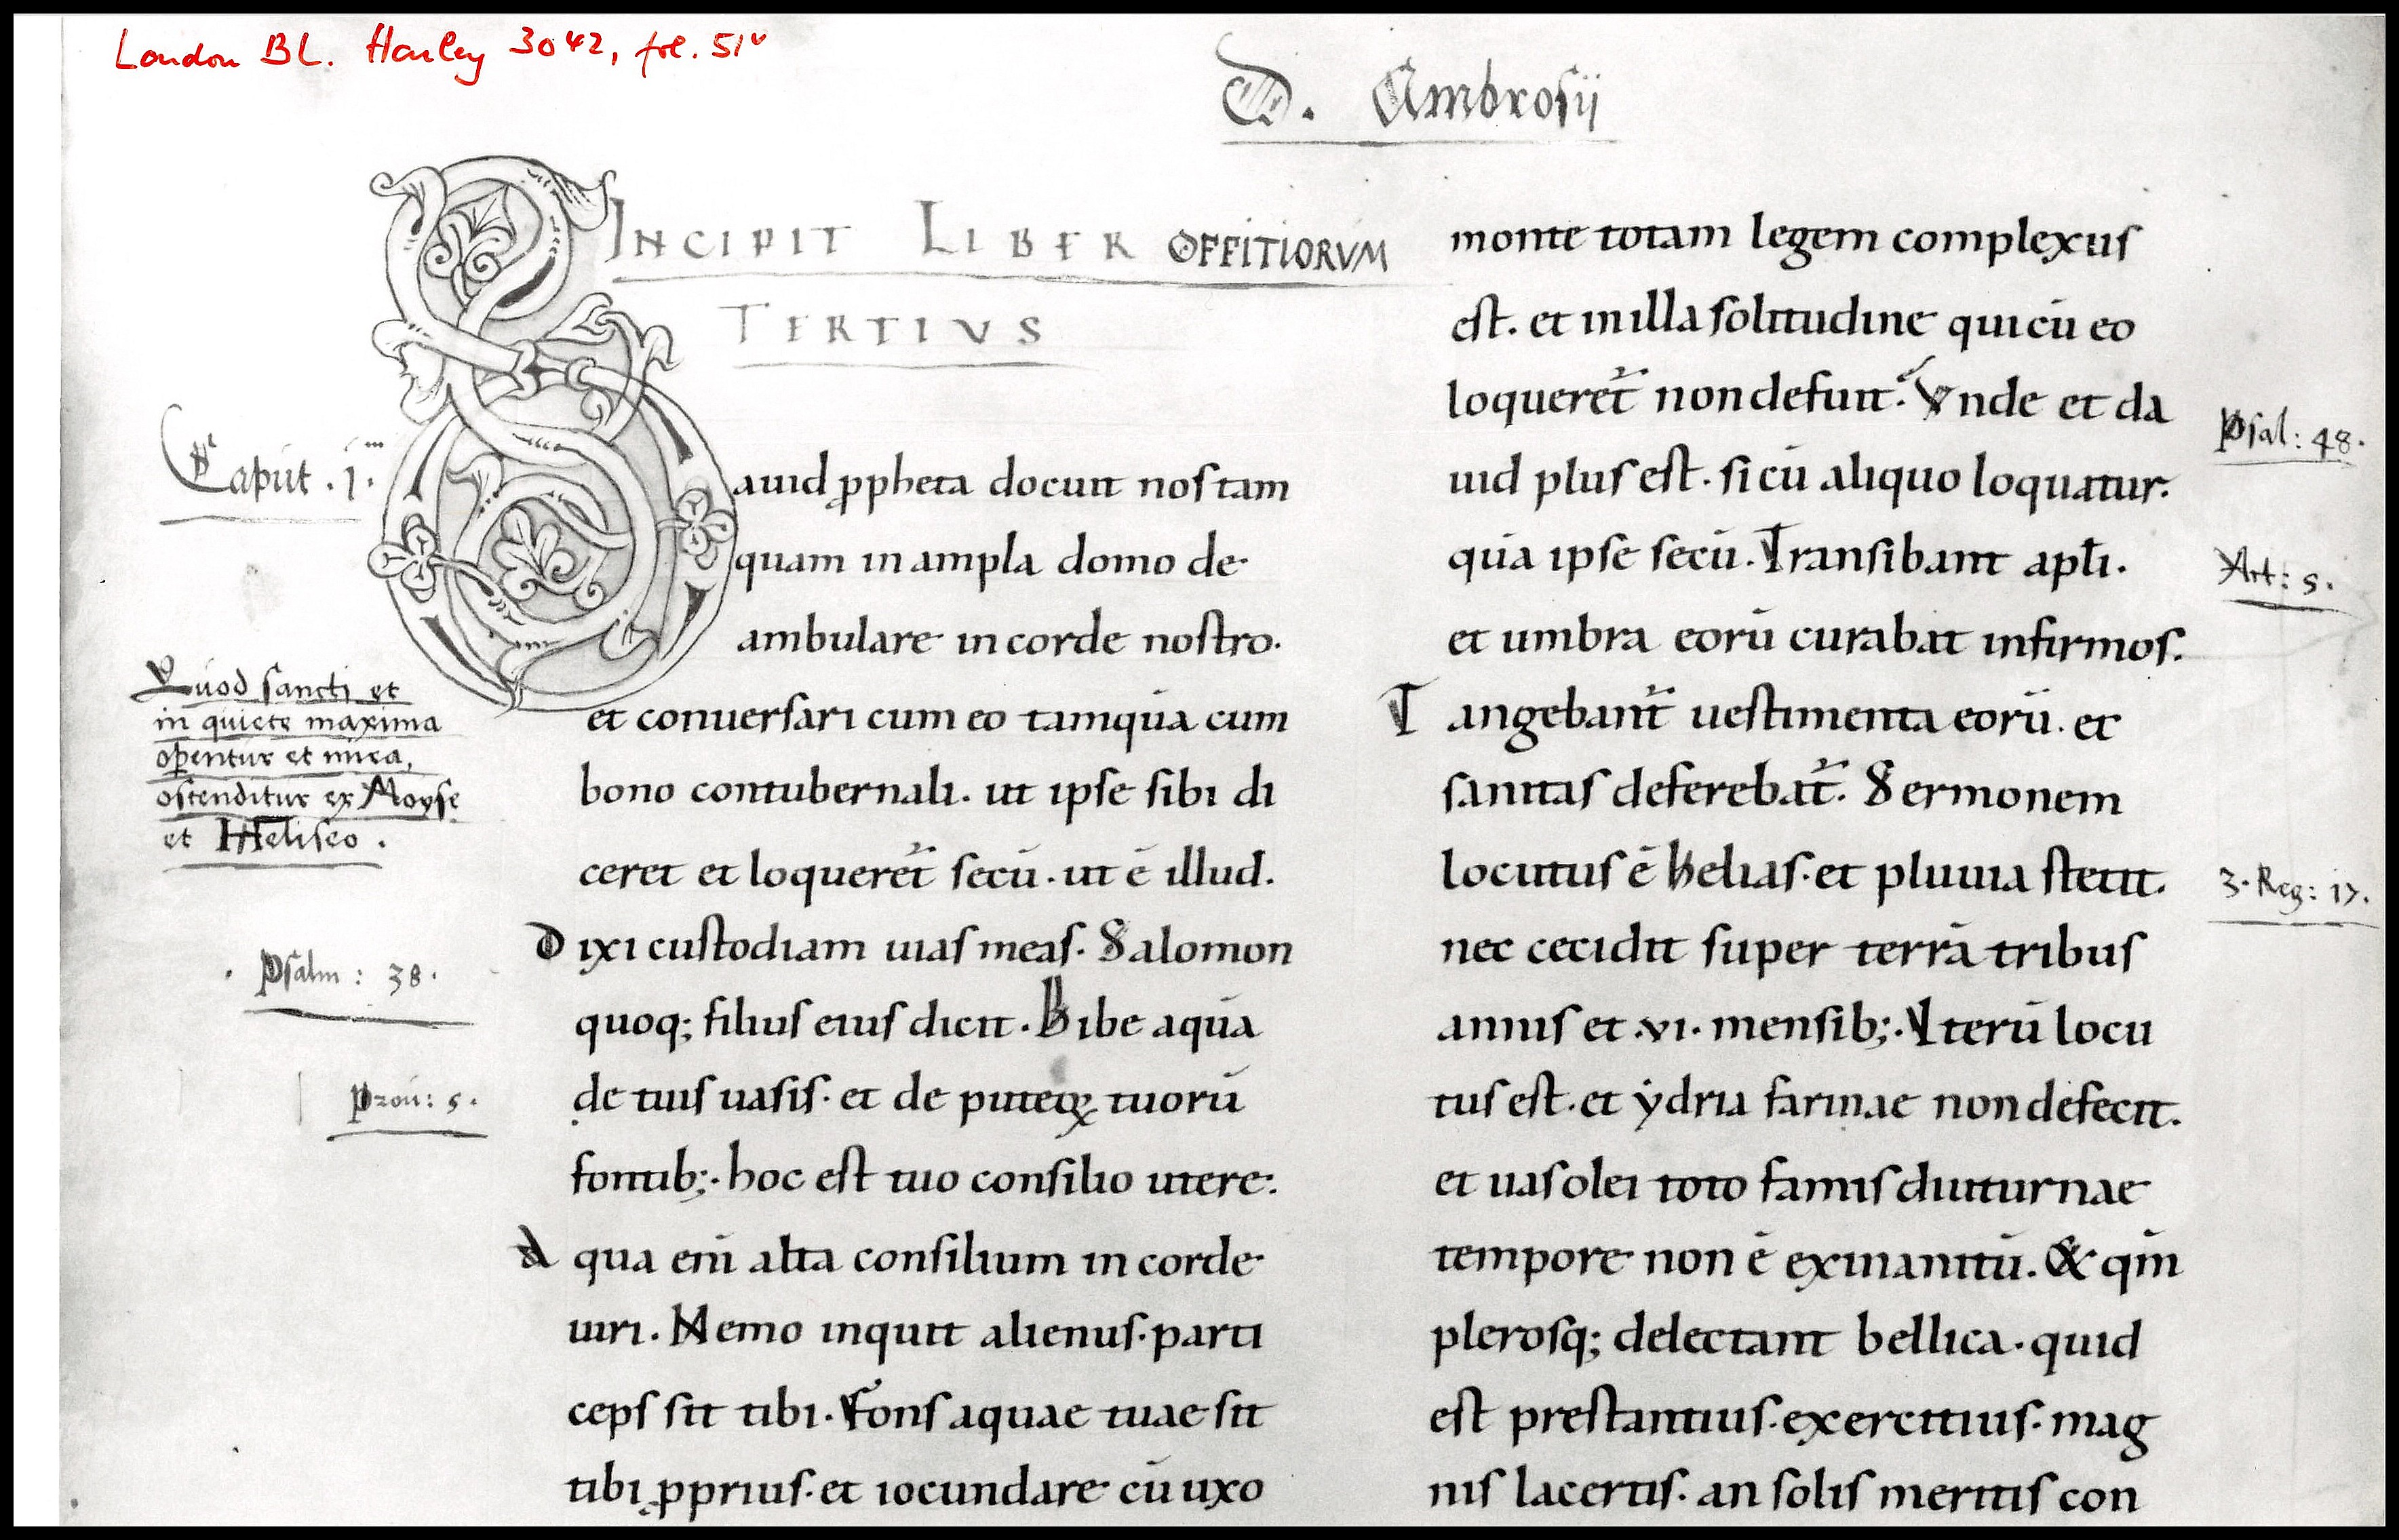 London BL. Harley 3042, fol. 51v
D. Ambrosij
INCIPIT LIBER OFFITIORVM
TERTIVS
Caput .1.
Dauid ꝓpheta docuit nos tam
quam in ampla domo de
ambulare in corde nostro.
et conuersari cum eo tamquā cum
bono contubernali. ut ipse sibi di
ceret et loqueret̄ secū. ut ē illud.
Dixi custodiam uias meas. Salomon
quoq; filius eius dicit. Bibe aquā
de tuis uasis. et de puteoꝝ tuorū
fontib;. hoc est tuo consilio utere.
Aqua eni alta consilium in corde
uiri. Nemo inquit alienus. parti
ceps sit tibi. Fons aquae tuae sit
tibi ꝓprius. et iocundare cū uxo
Quod sancti et
in quiete maxima
oꝑentur et mira,
ostenditur ex Moyse
et Heliseo.
Psalm: 38.
Prou: 5.
monte totam legem complexus
est. et in illa solitudine qui cū eo
loqueret̄ non defuit. Vnde et da
uid plus est. si cū aliquo loquatur.
quā ipse secū. Transibant apłi.
et umbra eorū curabat infirmos.
Tangebant̄ uestimenta eorū. et
sanitas deferebat̄. Sermonem
locutus ē helias. et pluuia stetit.
nec cecidit super terrā tribus
annis et .vi. mensib;. Iterū locu
tus est. et ẏdria farinae non defecit.
et uas olei toto famis diuturnae
tempore non ē exinanitū. & qm̄
plerosq; delectant bellica. quid
est prestantius. exercitius. mag
nis lacertis. an solis meritis con
Psal: 48.
Act: 5.
3. Reg: 17.